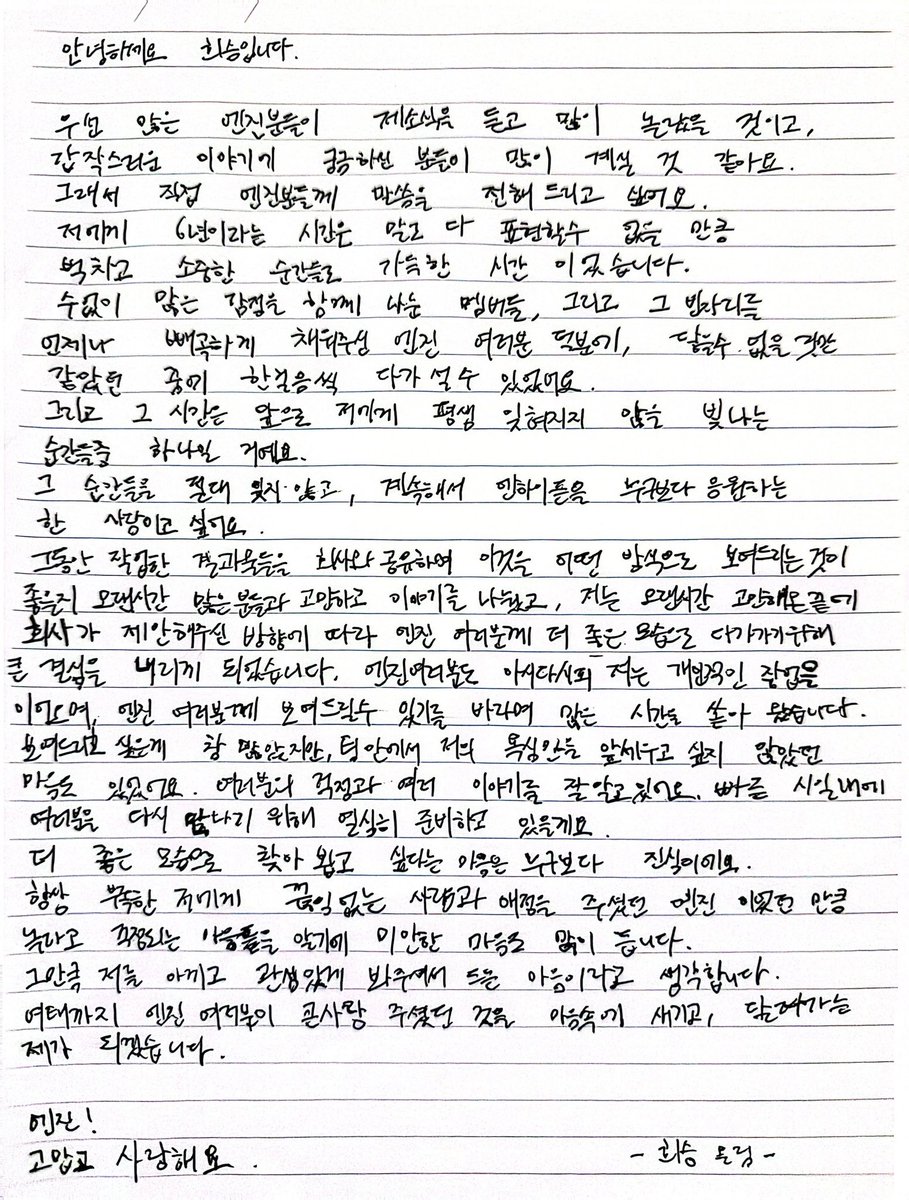 안녕하세요 희승입니다.
우선 많은 엔진분들이 제소식을 듣고 많이 놀랐을 것이고,
갑작스러운 이야기에 궁금하신 분들이 많이 계실 것 같아요.
그래서 직접 엔진분들께 말씀을 전해 드리고 싶어요.
저에게 6년이라는 시간은 말로 다 표현할수 없을 만큼
벅차고 소중한 순간들로 가득한 시간 이었습니다.
수없이 많은 감정을 함께 나눈 멤버들, 그리고 그 빈자리를
언제나 빼곡하게 채워주신 엔진 여러분 덕분에, 닿을수 없을 것만
같았던 꿈에 한걸음씩 다가 설 수 있었어요.
그리고 그 시간은 앞으로 저에게 평생 잊혀지지 않을 빛나는
순간들중 하나일 거예요.
그 순간들을 절대 잊지 않고, 계속해서 엔하이픈을 누구보다 응원하는
한 사람이고 싶어요.
그동안 작업한 결과물들을 회사와 공유하며 이것을 어떤 방식으로 보여드리는것이
좋을지 오랜시간 많은분들과 고민하고 이야기를 나눴고, 저는 오랜시간 고민해온끝에
회사가 제안해주신 방향에 따라 엔진 여러분께 더 좋은 모습으로 다가가기위해
큰 결심을 내리게 되었습니다. 엔진여러분도 아시다시피 저는 개인적인 작업을
이어오며, 엔진 여러분께 보여드릴수 있기를 바라며 많은 시간을 쏟아 왔습니다.
보여드리고 싶은게 참 많았지만, 팀 안에서 저의 욕심만을 앞세우고 싶지 않았던
마음도 있었어요. 여러분의 걱정과 여러 이야기를 잘 알고있어요. 빠른 시일내에
여러분을 다시 만나기 위해 열심히 준비하고 있을게요.
더 좋은 모습으로 찾아 뵙고 싶다는 마음은 누구보다 진심이에요.
항상 부족한 저에게 끊임없는 사랑과 애정을 주셨던 엔진 이었던 만큼
놀라고 걱정되는 마음들을 알기에 미안한 마음도 많이 듭니다.
그만큼 저를 아끼고 관심있게 봐주셔서 드는 마음이라고 생각합니다.
여태까지 엔진 여러분이 큰사랑 주셨던 것을 마음속에 새기고, 달려가는
제가 되겠습니다.
엔진!
고맙고 사랑해요.
- 희승 올림 -